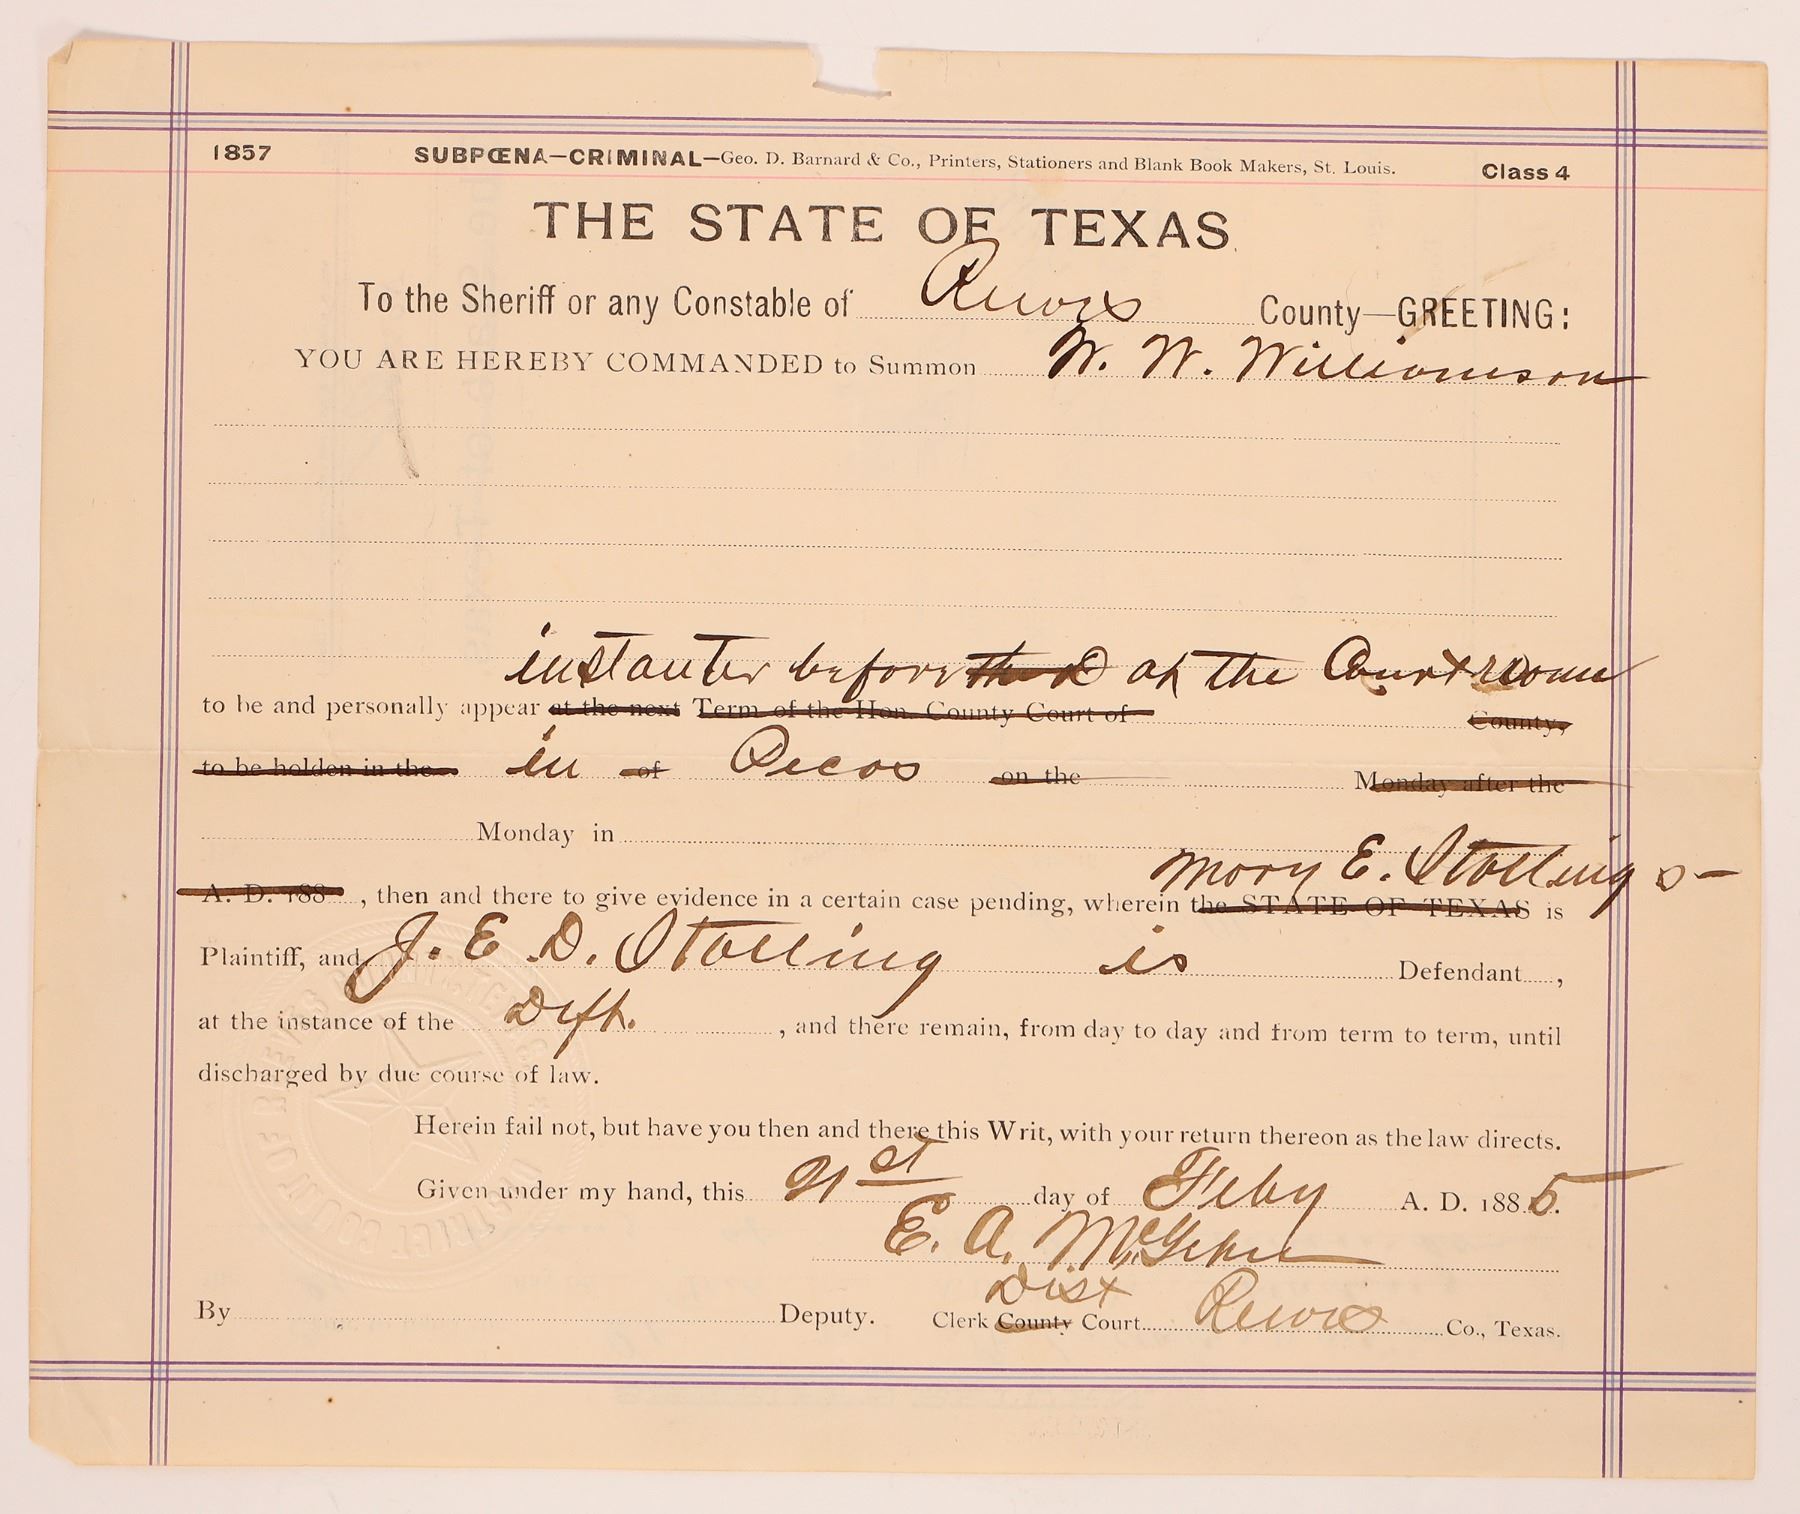 1857 SUBPŒNA—CRIMINAL—Geo. D. Barnard & Co., Printers, Stationers and Blank Book Makers, St. Louis. Class 4
THE STATE OF TEXAS.
To the Sheriff or any Constable of Reeves County—GREETING:
YOU ARE HEREBY COMMANDED to Summon W. W. Williamson
instanter before the D at the Court room
to be and personally appear at the next Term of the Hon. County Court of County,
to be holden in the in of Pecos on the Monday after the
Monday in
Mary E. Stallings
A. D. 188 , then and there to give evidence in a certain case pending, wherein the STATE OF TEXAS is
Plaintiff, and J. E. D. Stalling is Defendant ,
at the instance of the Deft. , and there remain, from day to day and from term to term, until
discharged by due course of law.
Herein fail not, but have you then and there this Writ, with your return thereon as the law directs.
Given under my hand, this 21st day of Feby A. D. 1885.
E. A. McGehee
Dist
By Deputy. Clerk County Court Reeves Co., Texas.
DISTRICT COURT OF REEVES